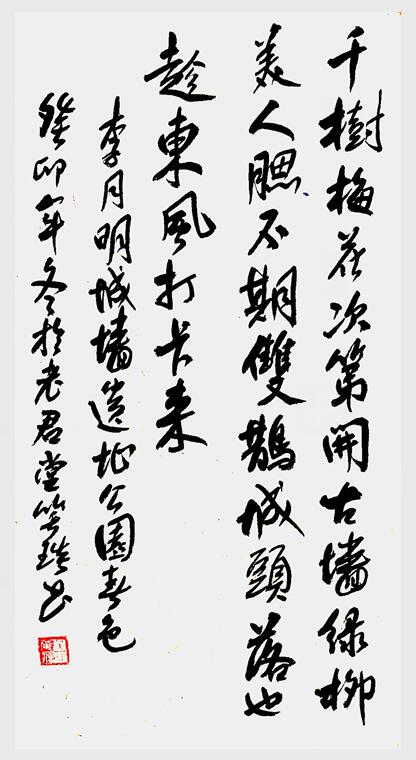 千樹梅花次第開古墻緑柳
美人腮不期雙鵲城頭落也
趁東風打卡来
李月明城墻遺址公園春色
癸卯年冬於老君堂书